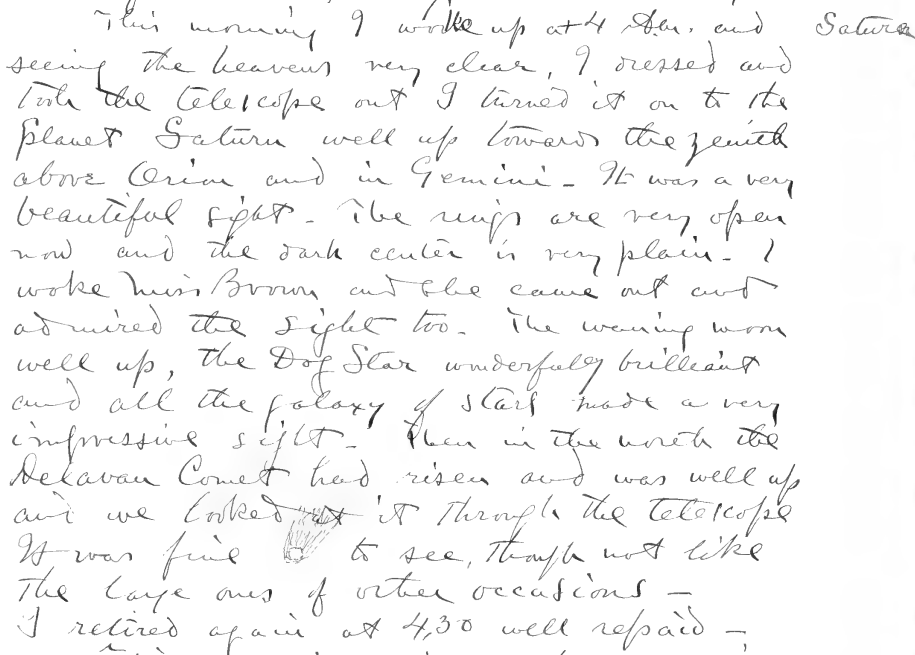 This morning I woke up at 4 A.m. and Saturn
seeing the heavens very clear, I dressed and
took the telescope out I turned it on to the
planet Saturn well up towards the zenith
above Orion and in Gemini - It was a very
beautiful sight - The rings are very open
now and the dark center is very plain - I
woke Miss Brown and she came out and
admired the sight too - The waning moon
well up, the Dog Star wonderfully brilliant
and all the galaxy of stars made a very
impressive sight - Then in the north the
Delavan Comet had risen and was well up
and we looked at it through the telescope
It was fine to see, though not like
the large ones of other occasions -
I retired again at 4,30 well repaid -